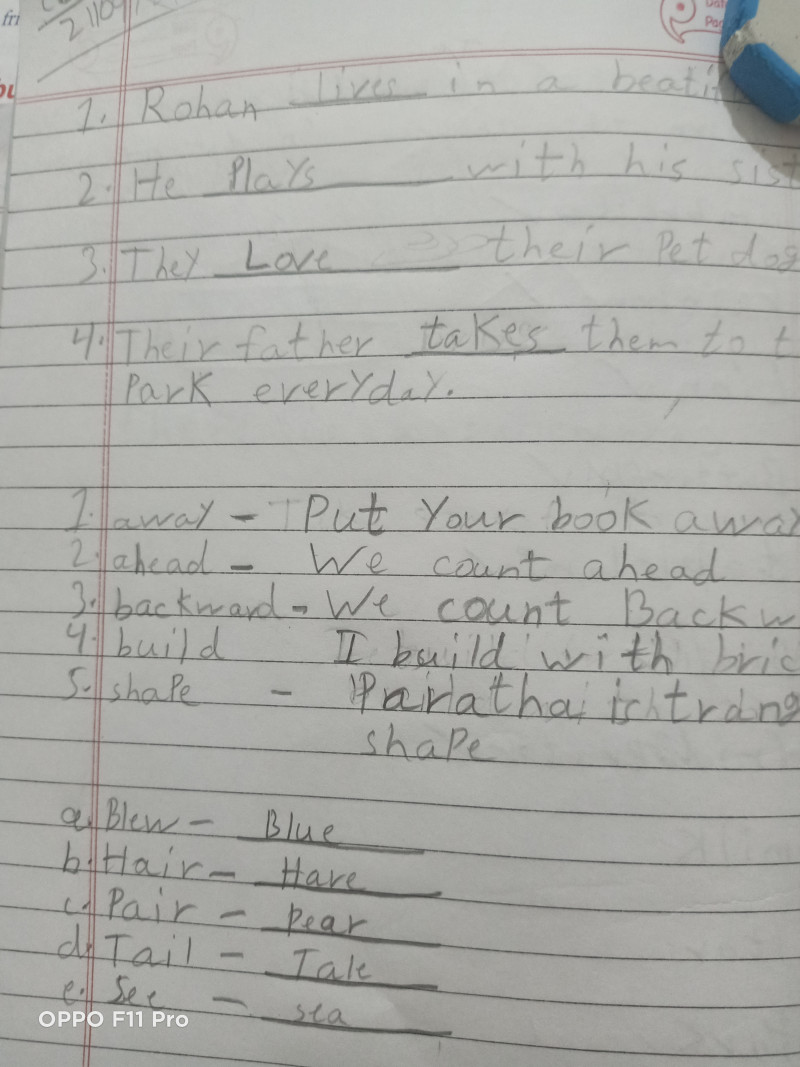 fri
1. Rohan lives in a beati
2. He Plays with his sist
3. They Love their Pet dog
4. Their father takes them to t
Park everyday.
1. away - Put Your book away
2. ahead - We count ahead
3. backward - We count Backw
4. build I build with bric
5. shape - Paratha is
shape
a. Blew - Blue
b. Hair - Hare
c. Pair - Pear
d. Tail - Tale
e. See - sea
OPPO F11 Pro